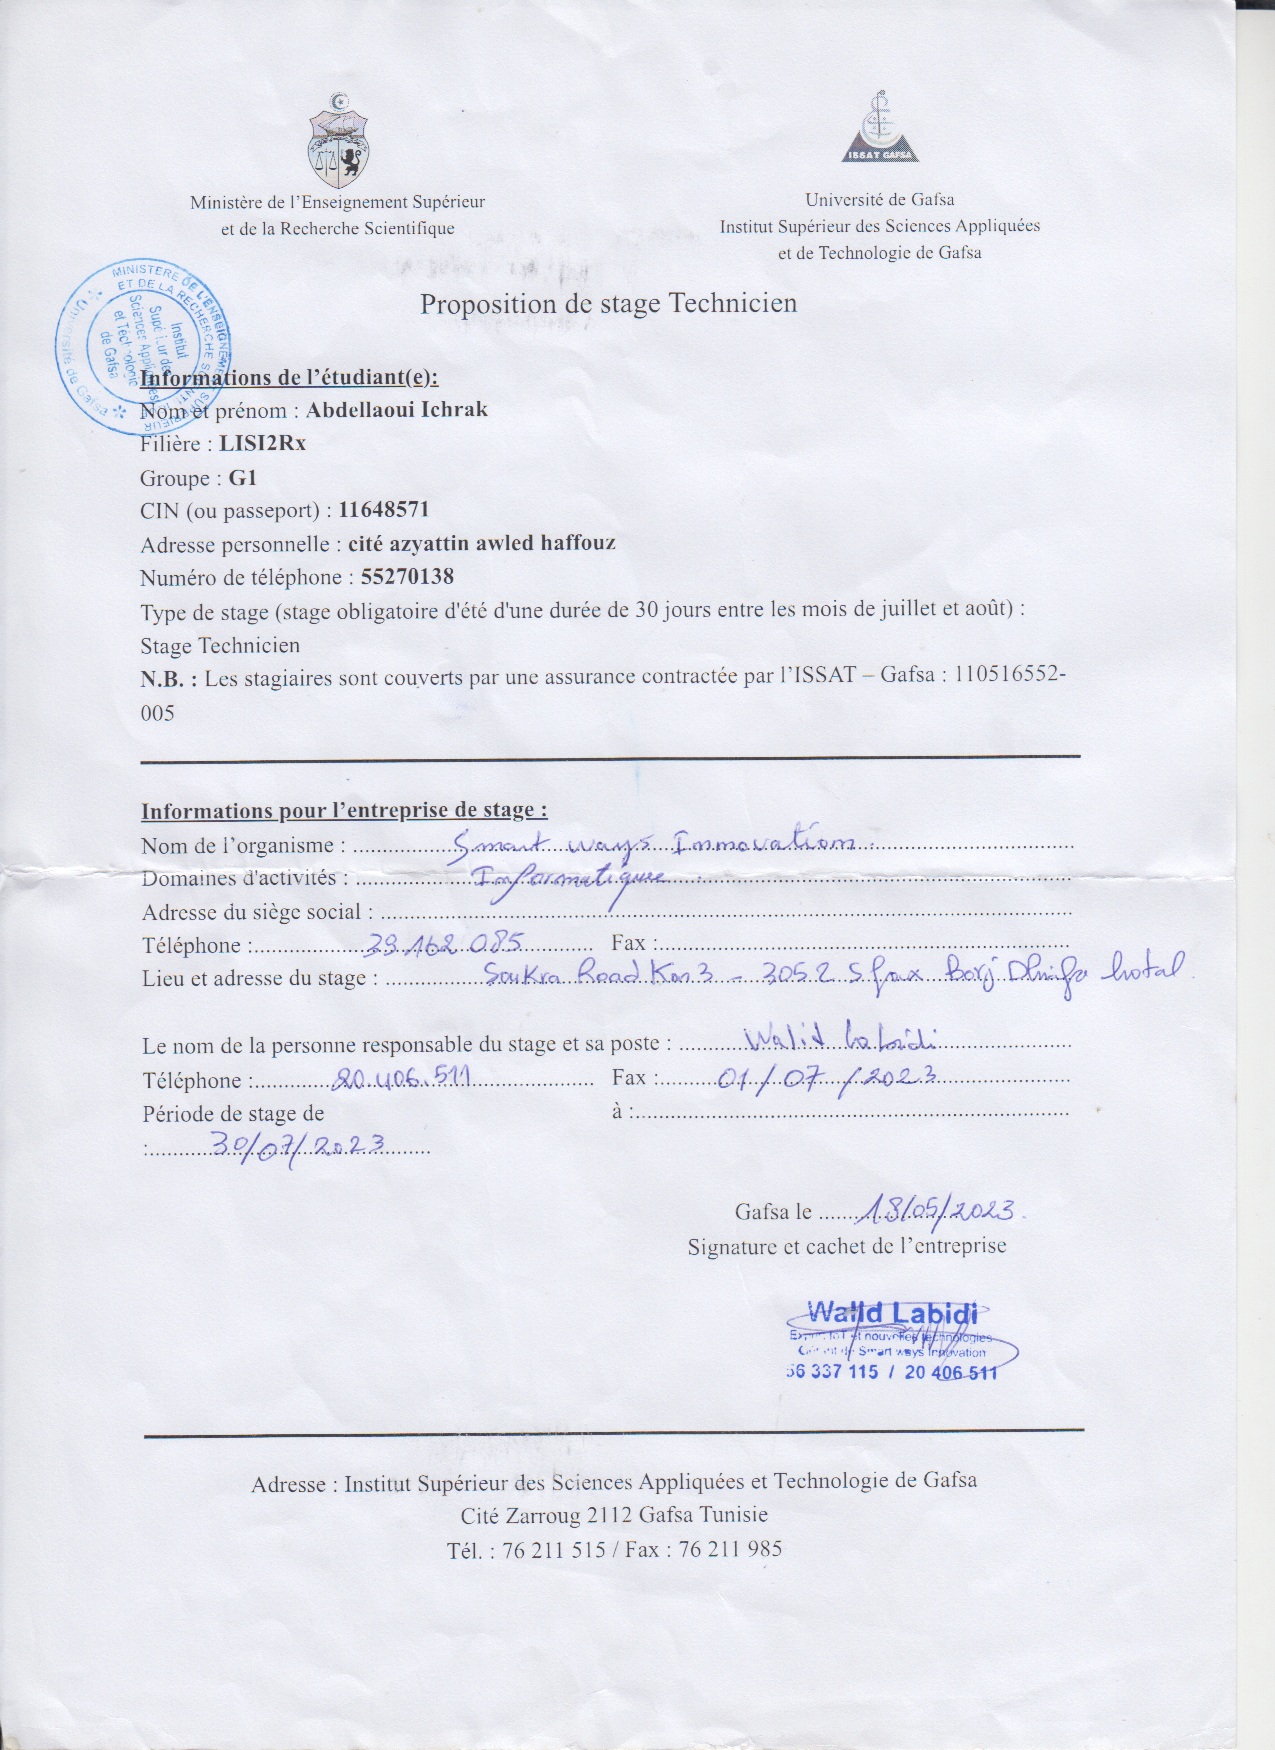 ISSAT GAFSA
Ministère de l'Enseignement Supérieur
et de la Recherche Scientifique
Université de Gafsa
Institut Supérieur des Sciences Appliquées
et de Technologie de Gafsa
MINISTERE DE L'ENSEIGNEMENT SUPERIEUR
ET DE LA RECHERCHE SCIENT.
Université de Gafsa
Institut
Supérieur des
Sciences Appliquées
et Technologie
de Gafsa
Proposition de stage Technicien
Informations de l'étudiant(e):
Nom et prénom : Abdellaoui Ichrak
Filière : LISI2Rx
Groupe : G1
CIN (ou passeport) : 11648571
Adresse personnelle : cité azyattin awled haffouz
Numéro de téléphone : 55270138
Type de stage (stage obligatoire d'été d'une durée de 30 jours entre les mois de juillet et août) :
Stage Technicien
N.B. : Les stagiaires sont couverts par une assurance contractée par l'ISSAT – Gafsa : 110516552-
005
Informations pour l'entreprise de stage :
Nom de l'organisme : Smart ways Innovation
Domaines d'activités : Informatique
Adresse du siège social :
Téléphone : 29.162.085 Fax :
Lieu et adresse du stage : Soukra Road Km 3 - 3052 Sfax Borj Dhiafa hotal
Le nom de la personne responsable du stage et sa poste : Walid Labidi
Téléphone : 20.406.511 Fax : 01/07/2023
Période de stage de à :
: 30/07/2023
Gafsa le 18/05/2023
Signature et cachet de l'entreprise
Walid Labidi
Expert IoT et nouvelles technologies
Gérant de Smart ways Innovation
56 337 115 / 20 406 511
Adresse : Institut Supérieur des Sciences Appliquées et Technologie de Gafsa
Cité Zarroug 2112 Gafsa Tunisie
Tél. : 76 211 515 / Fax : 76 211 985